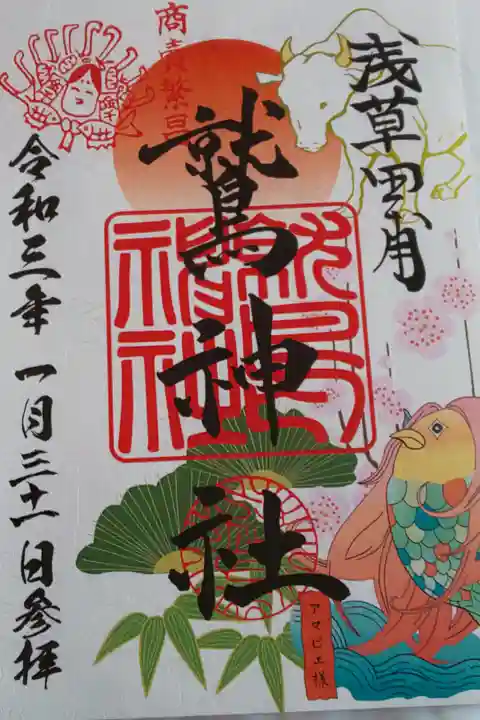 浅草田甫
商売繁昌
鷲神社
鷲神社
令和三年 一月三十一日参拝
アマビエ様